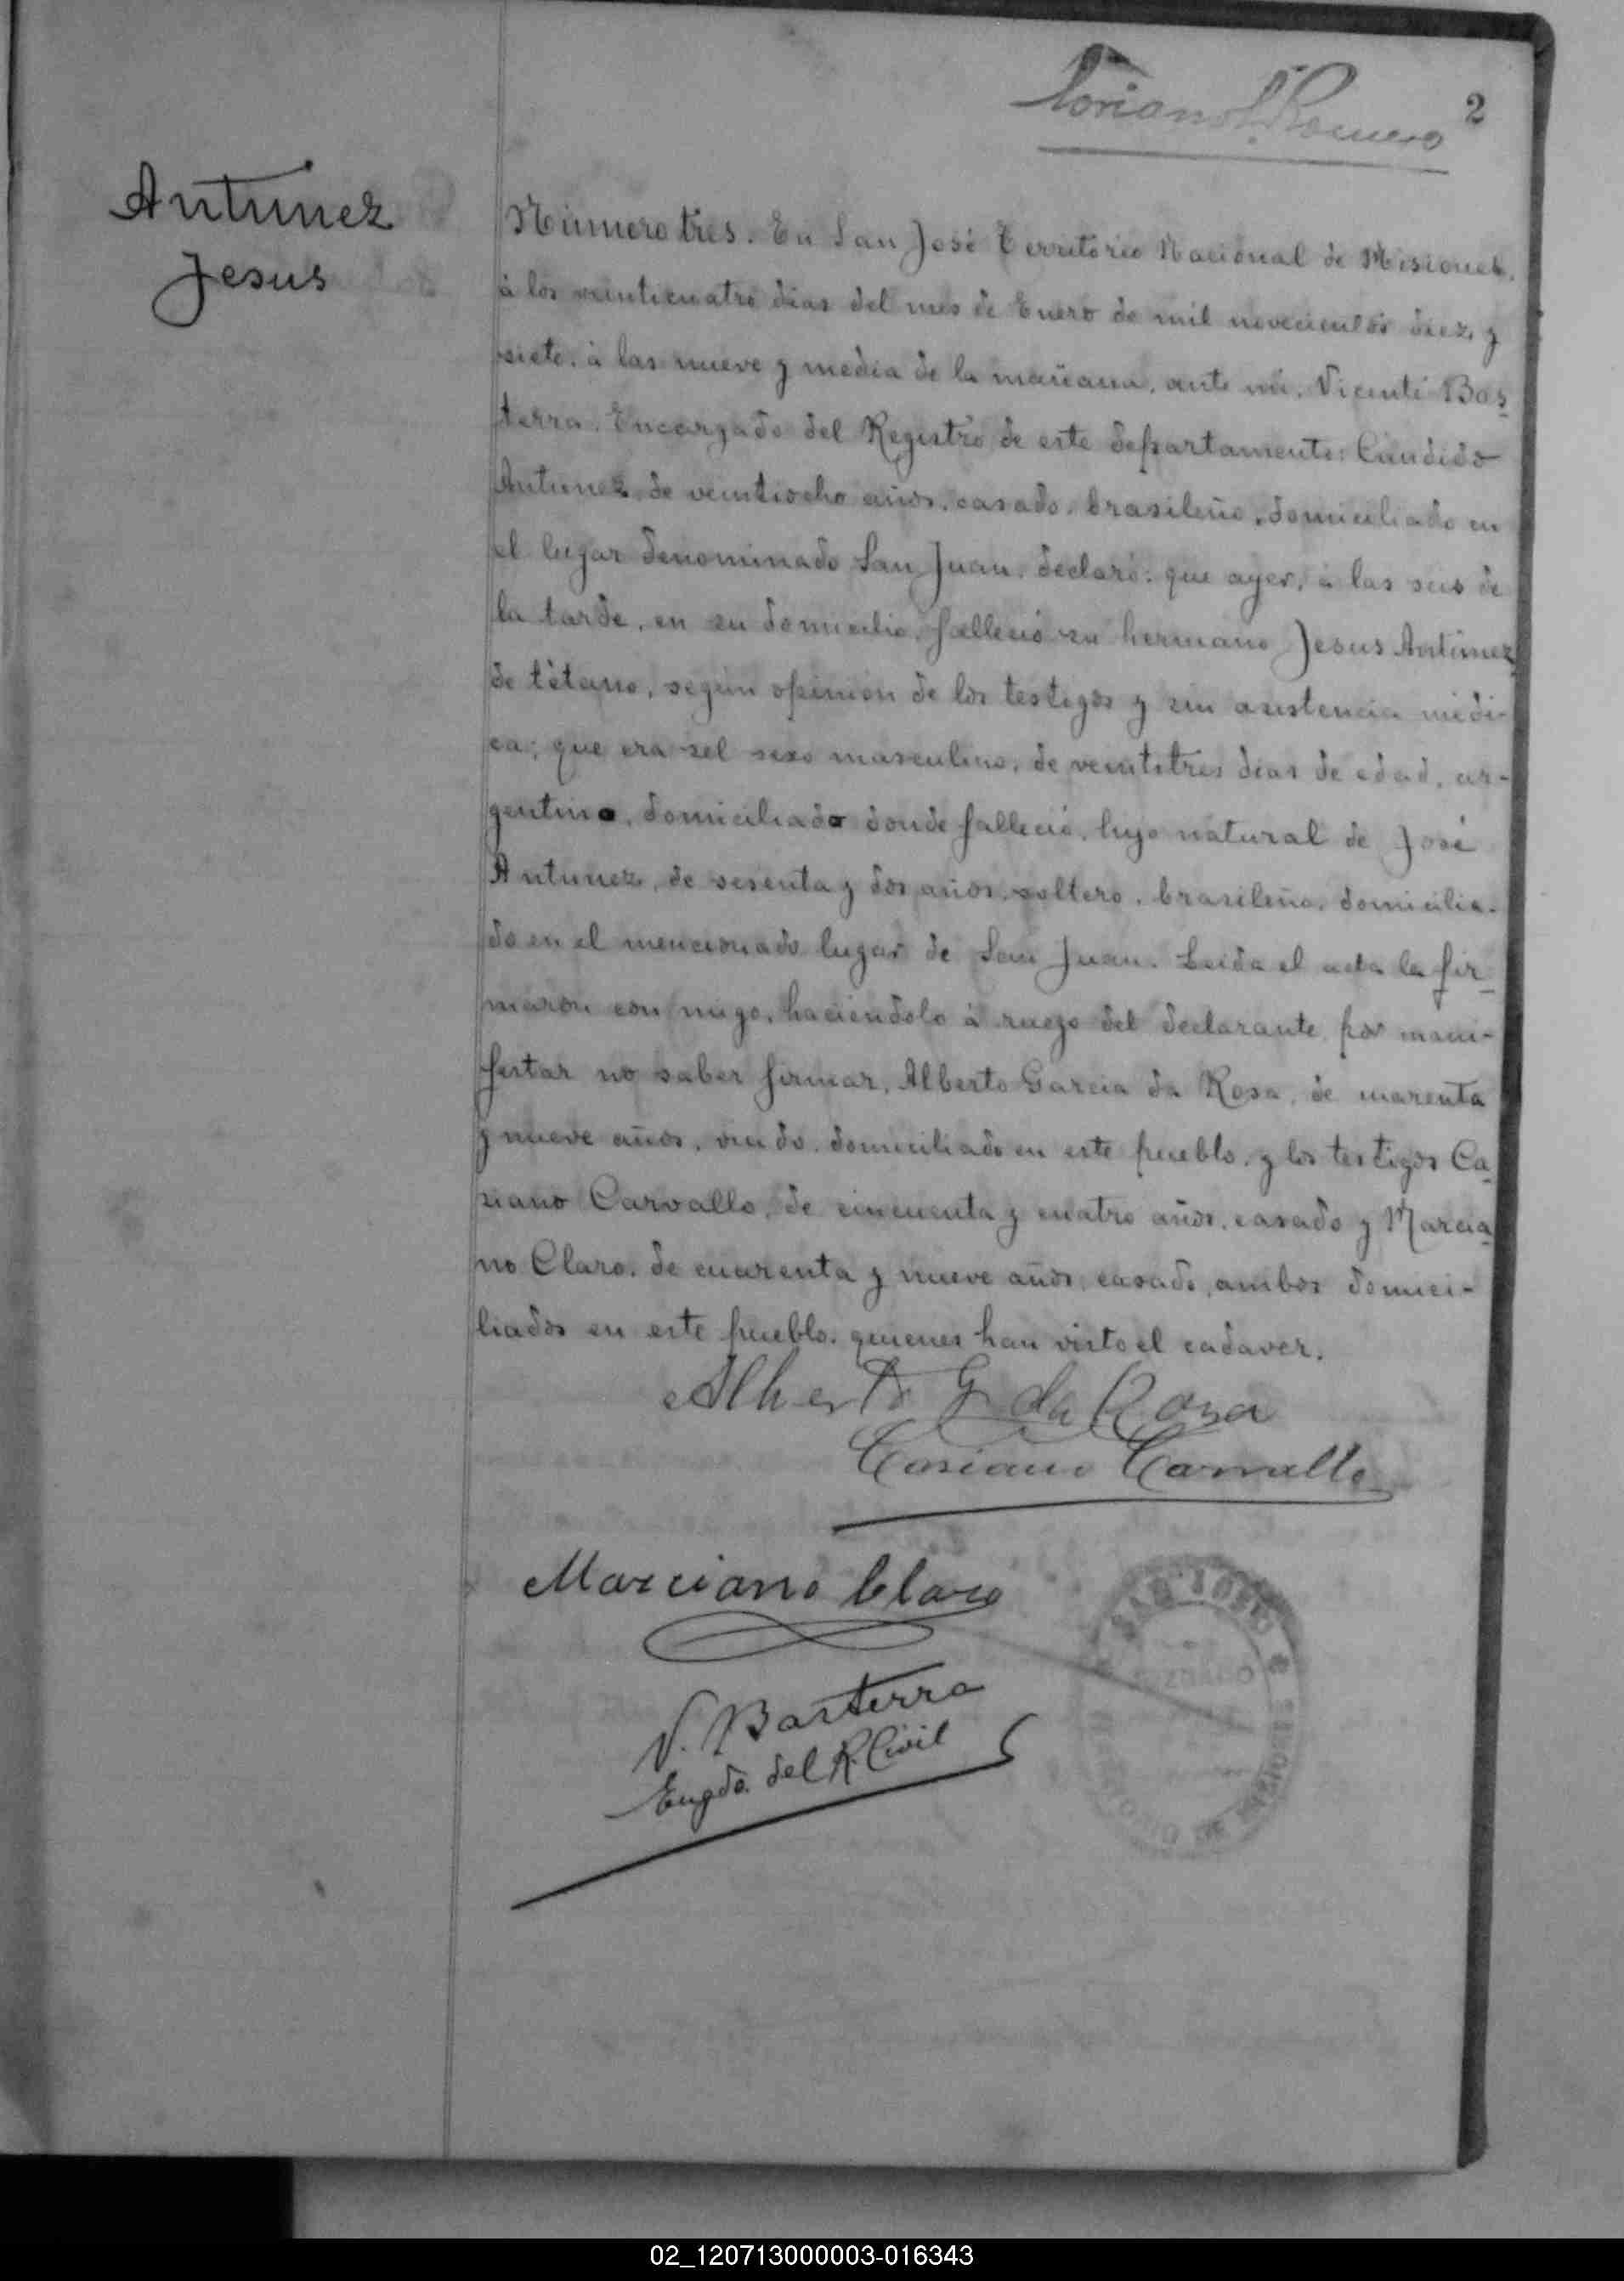 Romero
2
Antunez
Jesus
Número tres. En San José Territorio Nacional de Misiones,
à los veinticuatro dias del mes de Enero de mil novecientos diez y
siete, à las nueve y media de la mañana, ante mi, Vicente Bas
terra, Encargado del Registro de este departamento: Candido
Antunez, de veintiocho años, casado, brasileño, domiciliado en
el lugar denominado San Juan, declaró: que ayer, à las seis de
la tarde, en su domicilio, falleció su hermano Jesus Antunez
de tétano, según opinion de los testigos y sin asistencia médi-
ca; que era sel sexo masculino, de veintitres dias de edad, ar-
gentino, domiciliado donde falleció, hijo natural de José
Antunez, de sesenta y dos años, soltero, brasileño, domicilia-
do en el mencionado lugar de San Juan. Leida el acta la fir_
maron con migo, haciendolo à ruego del declarante por mani-
festar no saber firmar, Alberto Garcia da Rosa, de cuarenta
y nueve años, viudo, domiciliado en este pueblo, y los testigos Ca_
siano Carvallo, de cincuenta y cuatro años, casado y Marcia_
no Claro, de cuarenta y nueve años, casado, ambos domici-
liados en este pueblo, quienes han visto el cadaver.
Alberto G. da Rosa
Casiano Carvallo
Marciano Claro
V. Basterra
Engdo. del R. Civil
SAN JOSE
JUZGADO
TERRITORIO DE MISIONES
02_120713000003-016343